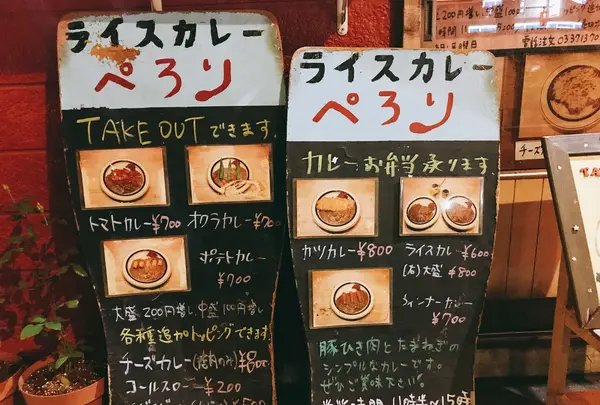 ライスカレー
ぺろり
TAKE OUT できます
トマトカレー ¥700
オクラカレー ¥700
ポテトカレー
¥700
大盛200円増し、中盛100円増し
各種追加トッピングできます
チーズカレー(店内のみ)¥800
コールスロー ¥200
ライスカレー
ぺろり
カレーお弁当承ります
カツカレー ¥800
ライスカレー ¥600
(右)大盛 ¥800
ウィンナーカレー
¥700
豚ひき肉とたまねぎの
シンプルなカレーです。
ぜひご賞味下さい。
11時半〜15時
200円増
電話注文 03 3713 70
チーズ